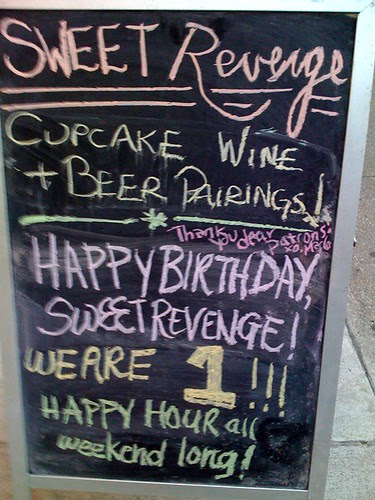 SWEET Revenge
CUPCAKE WINE
+ BEER PAIRINGS!
Thank you dear patrons!
xo,
HAPPY BIRTHDAY,
SWEET REVENGE!
WE ARE 1!!!
HAPPY HOUR all
weekend long!